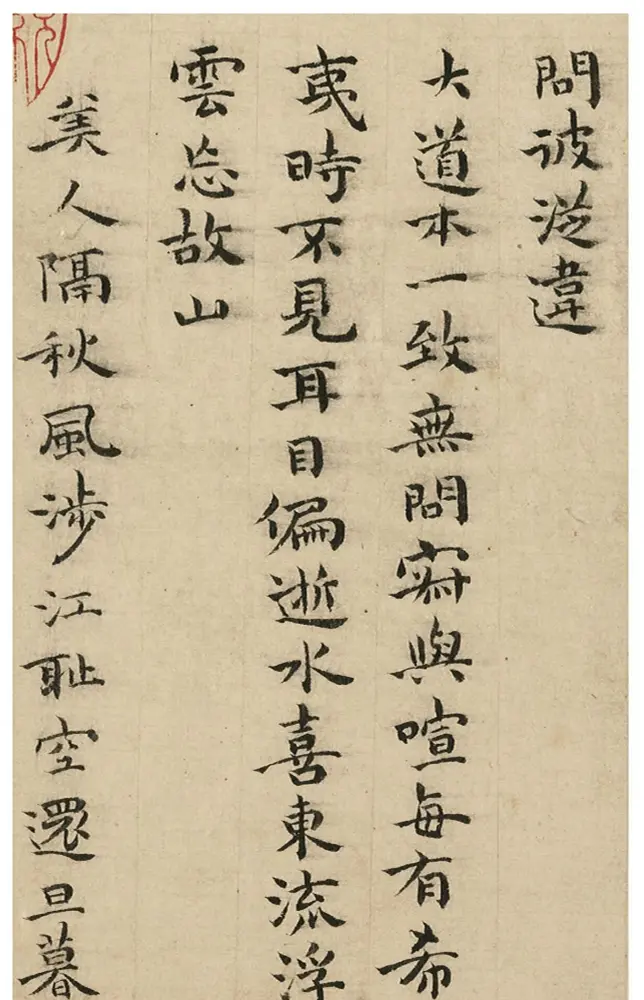 問彼逆違
大道本一致無問寂與喧每有希
夷時不見耳目偏逝水喜東流浮
雲忘故山
美人隔秋風涉江恥空還旦暮